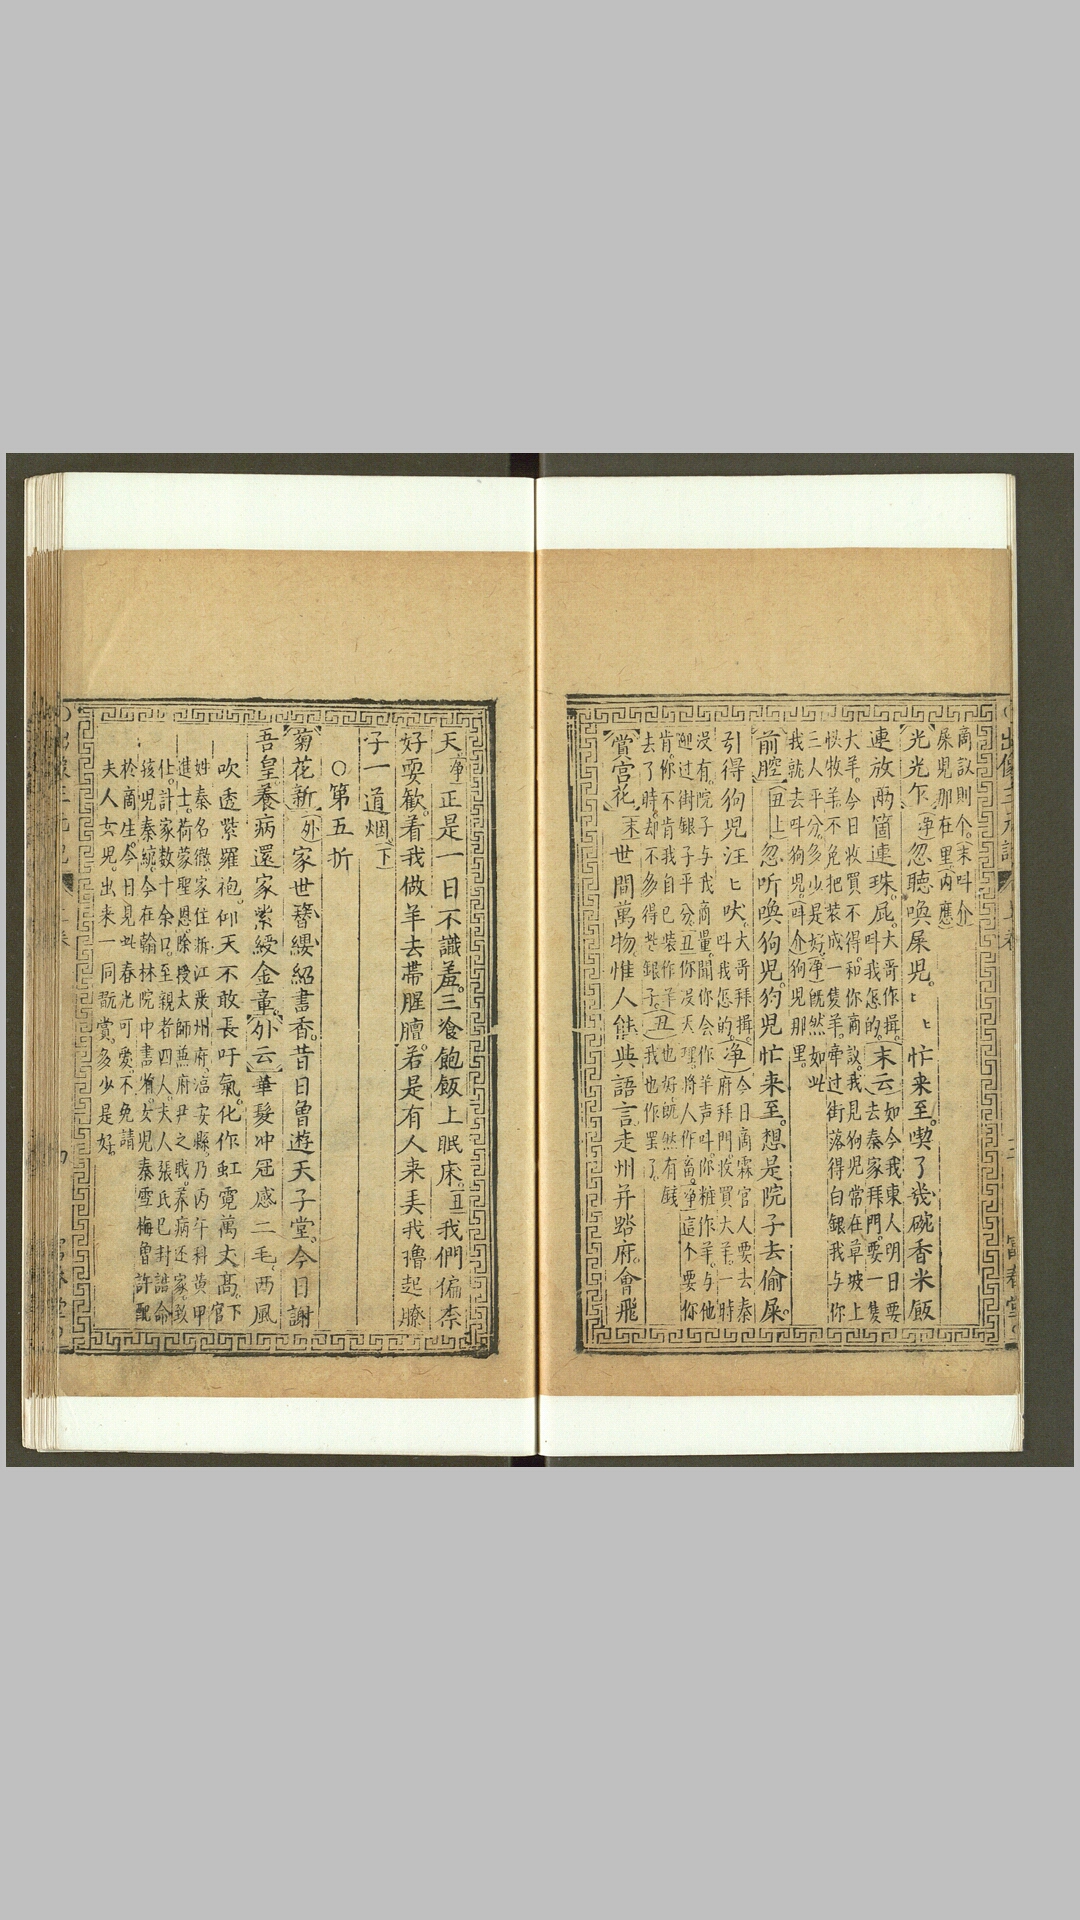 商议則个。末叫介
屎児那在里。內應
光光乍 净 忽聽喚屎児。〻〻忙来至。喫了幾碗香米飯
連放兩箇連珠屁。大哥作揖。末云如今我東人明日要
叫我怎的。去秦家拜門。要一隻
大羊。今日收買不得。和你商議。我見狗児常在草坡上
快牧羊。不免把装成一隻羊。牽过街落得白銀我与你
三人平分。多少是好。净既然如此
我就去叫狗児。叫介狗児那里。
前腔 丑上 忽听喚狗児。狗児忙来至。想是院子去偷屎。
引得狗児汪〻吠。大哥拜揖。净今日商霖官人要去秦
叫我怎的。府拜門。收買大羊。一時
没有。院子与我商量。聞你会作羊声叫。你粧作羊。与他
迎过街銀子平分。丑你没天理。将人作畜。净這个要你
肯。你不肯我自已装作羊也好。既然有
去了時。却不多得些銀子。丑我也作罢了。
賞宮花 末 世間萬物。惟人能典語言。走州并踏府。會飛
天 净 正是一日不識羞。三飡飽飯上眠床。丑我們偏柰
好耍歡。看我做羊去帶腥膻。若是有人来弄我。撸起䐺
子一道烟。下
○第五折
菊花新 外 家世簪纓紹書香。昔日曾遊天子堂。今日謝
吾皇。養病還家紫綬金章。外云華髮冲冠感二毛。西風
吹透紫羅袍。仰天不敢長吁氣。化作虹霓萬丈髙。下官
姓秦名徹。家住浙江庋州府。臨安縣。乃丙午科黄甲
進士。荷蒙聖恩。除授太師兼府尹之職。养病还家。致
仕。計家数十余口。至親者四人。夫人張氏巳封誥命
孩児秦統。今在翰林院中書省。女児秦雪梅曽許配
於商生。今日見此春光可愛。不免請
夫人女児。出来一同翫賞。多少是好。